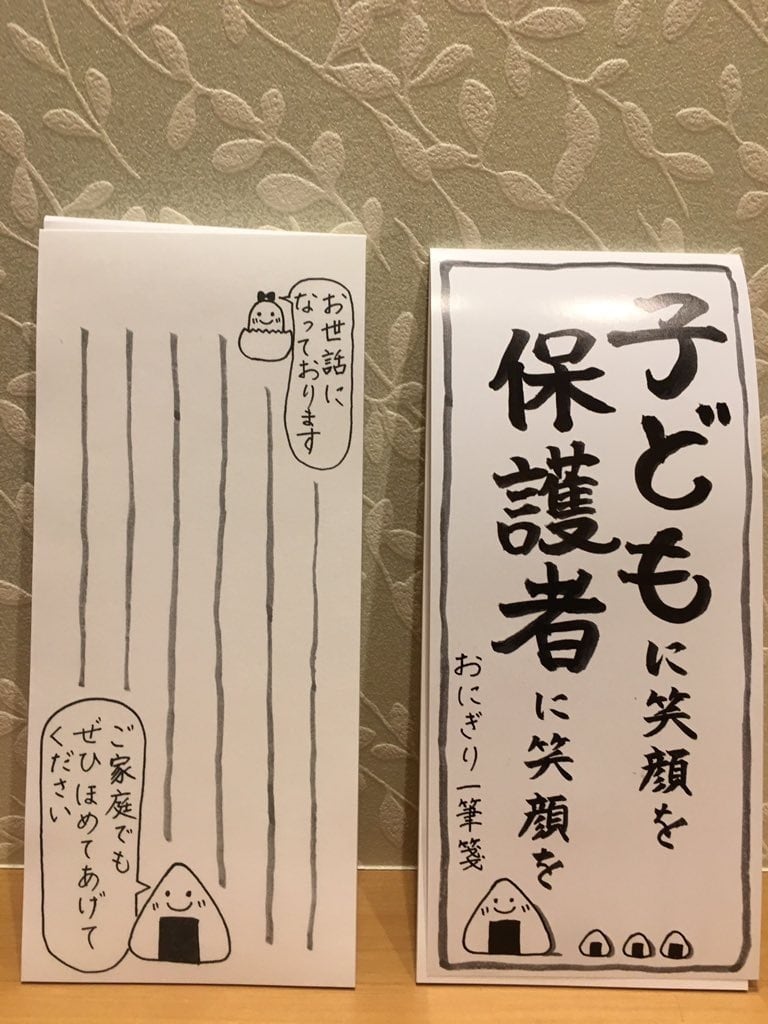 お世話に
なっております
ご家庭でも
ぜひほめてあげて
ください
子どもに笑顔を
保護者に笑顔を
おにぎり一筆箋